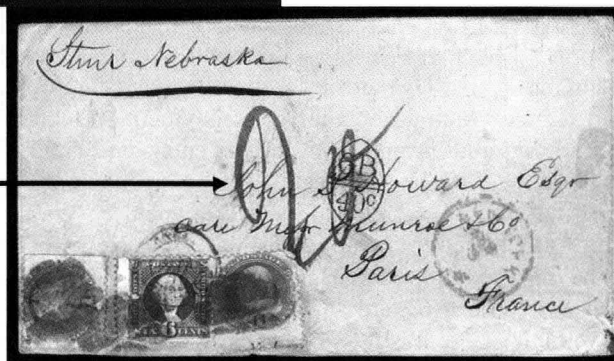 Stmr Nebraska
GB
40c
John S Howard Esqr
care Messr Munroe & Co
Paris
France
6 CENTS